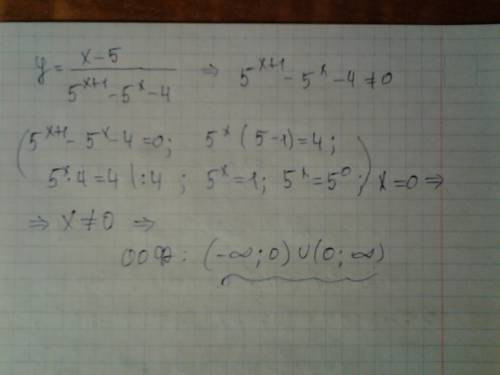 y = \frac{x-5}{5^{x+1}-5^x-4} ⇒ 5^{x+1}-5^x-4≠0
(5^{x+1}-5^x-4=0; 5^x(5-1)=4;
5^x·4=4 |:4 ; 5^x=1; 5^x=5^0;) x=0 ⇒
⇒ x≠0 ⇒
ООФ: (-∞;0)∪(0;∞)